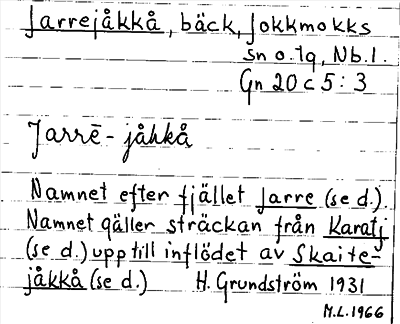 Jarrejåkkå, bäck, Jokkmokks
sn o. tg, Nb. l.
Gn 20 c 5 : 3
Jarrē - jåhkå
Namnet efter fjället Jarre (se d.).
Namnet gäller sträckan från Karatj
(se d.) upp till inflödet av Skaite-
jåkkå (se d.) H. Grundström 1931
M.L. 1966